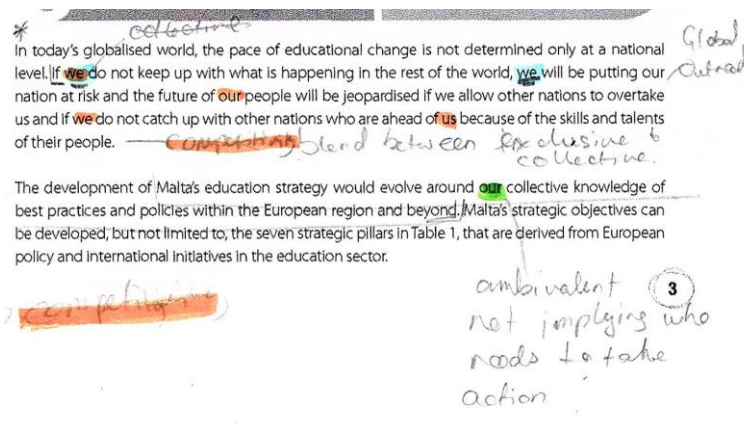 * collective
In today's globalised world, the pace of educational change is not determined only at a national
Global
level. If we do not keep up with what is happening in the rest of the world, we will be putting our
nation at risk and the future of our people will be jeopardised if we allow other nations to overtake
us and if we do not catch up with other nations who are ahead of us because of the skills and talents
of their people. blend between exclusive &
collective.
The development of Malta's education strategy would evolve around our collective knowledge of
best practices and policies within the European region and beyond. Malta's strategic objectives can
be developed, but not limited to, the seven strategic pillars in Table 1, that are derived from European
policy and international initiatives in the education sector.
ambivalent
3
not implying who
needs to take
action